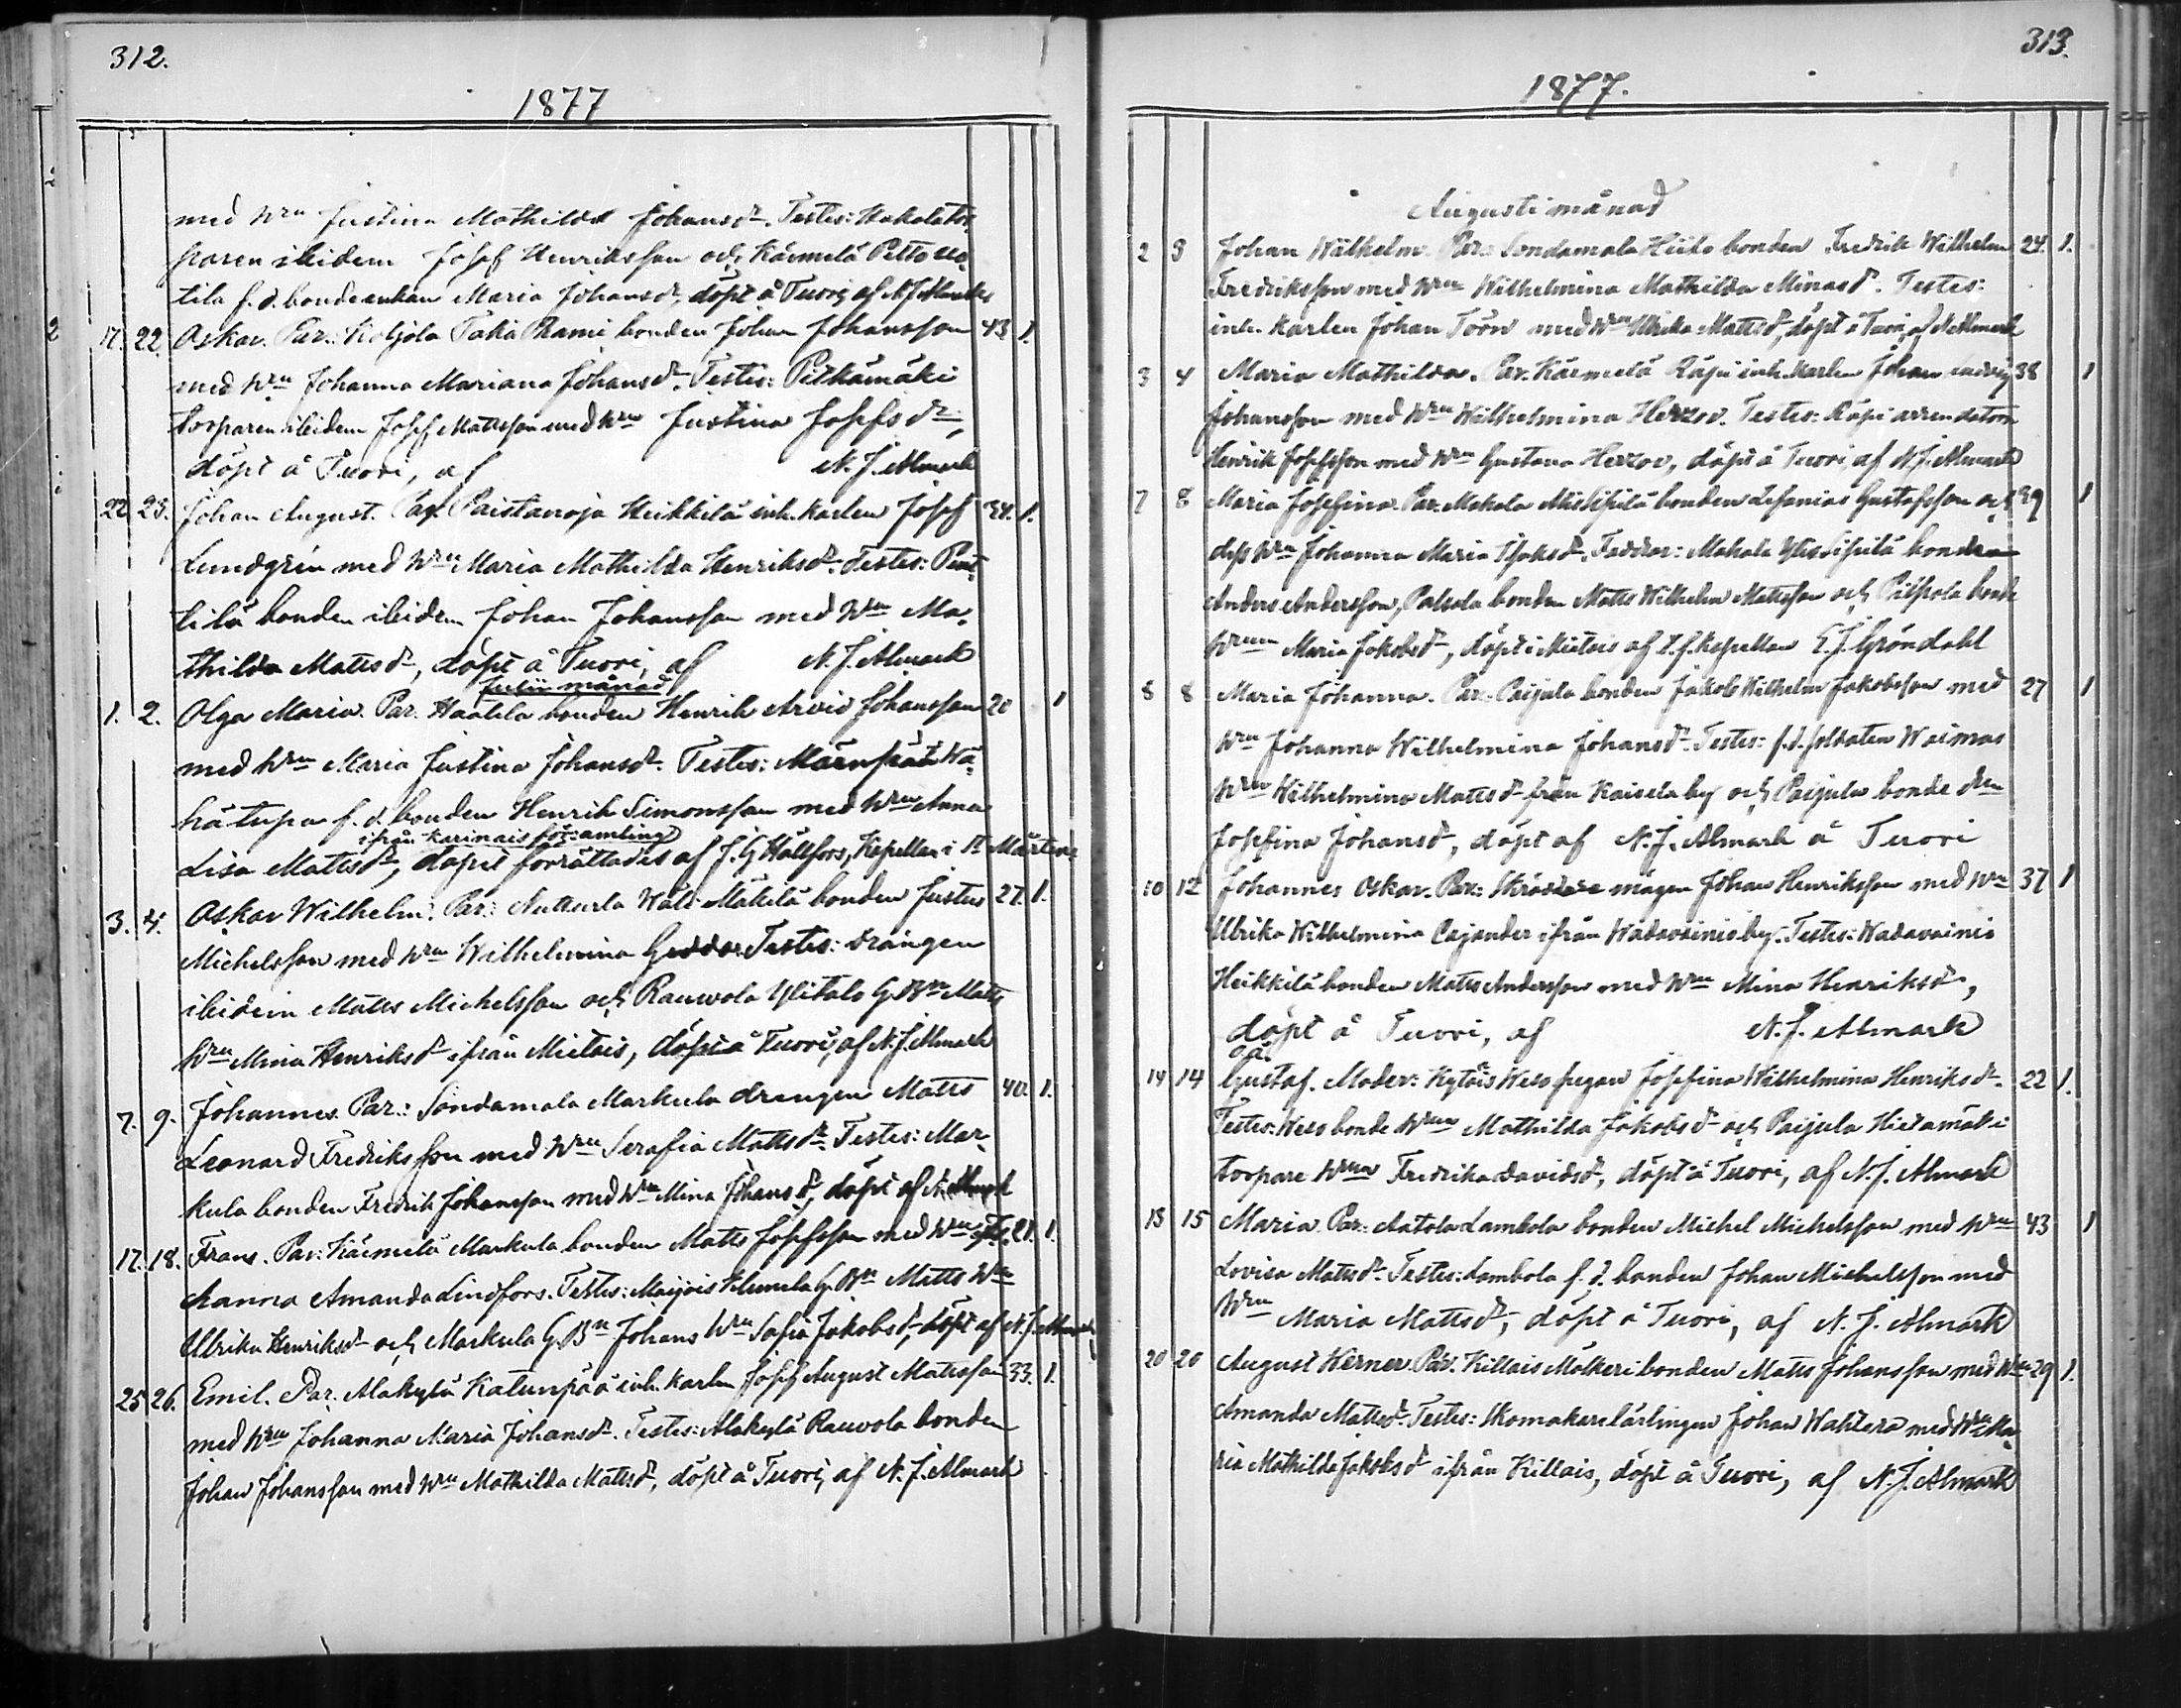 312.
1877
med Hru Justina Mathilda Johansdr. Testes: Kakolator-
paren ibidem Josef Henriksson och Kärmelä Pelto uo-
tila f.d. bondeenkan Maria Johansdr, döpt å Tuori, af N. J. Almark
17. 22. Oskar. Par.: Koljola Taka Rami bonden Johan Johansson 43 1.
med Hru Johanna Mariana Johansdr. Testes: Pitkämäki
torparen ibidem Josef Mattsson med Hru Justina Josefsdr,
döpt å Tuori, af N. J. Almark
22 23. Johan August. Par. Paistanoja Heikkilä inh. karlen Josef 34. 1.
Lundgrén med Hru Maria Mathilda Henriksdr. Testes: Pent-
tilä bonden ibidem Johan Johansson med Hru Ma-
thilda Mattsdr, döpt å Tuori, af N. J. Almark
Julii månad
1. 2. Olga Maria. Par. Haalela bonden Henrik Arvid Johansson 20 1
med Hru Maria Justina Johansdr. Testes: Märnpää Wä-
hätupa f.d. bonden Henrik Simonsson med Hru Anna
ifrån Karinais församling
Lisa Mattsdr, dopet förrättades af J. G. Hällfors, Kapellan i St Mårtens
3. 4. Oskar Wilhelm. Par: Autturla Wäli Mäkilä bonden Justus 27. 1.
Michelsson med Hru Wilhelmina Gedda. Testes: drängen
ibidem Matts Michelsson och Rauvola Ylitalo G.Bn Matts
Hru Mina Henriksdr ifrån Mietois, döpt å Tuori, af N. J. Almark
7. 9. Johannes. Par.: Sondamala Markula drengen Matts 40. 1.
Leonard Fredriksson med Hru Serafia Mattsdr. Testes: Mar-
kula bonden Fredrik Johansson med Hru Mina Johansdr, döpt af N. Almark
17. 18. Frans. Par: Kärmelä Markula bonden Matts Josefsson med Hru 21. 1.
Hanna Amanda Lindfors. Testes: Maijois Klemela G.Bn Matts Hru
Ulrika Henriksdr och Markula G.Bn Johans Hru Sofia Jakobsdr, döpt af N. J. Almark
25 26. Emil. Par. Alakylä Katunpää inh. karlen Josef August Mattsson 33. 1.
med Hru Johanna Maria Johansdr. Testes: Alakylä Rauvola bonden
Johan Johansson med Hru Mathilda Mattsdr, döpt å Tuori, af N. J. Almark
313.
1877.
Augusti månad
2 3 Johan Wilhelm. Par: Sondamala Hiito bonden Fredrik Wilhelm 24. 1.
Fredriksson med Hru Wilhelmina Mathilda Minasdr. Testes:
inh. karlen Johan Törn med Hru Ulrika Mattsdr, döpt å Tuori, af N Almark
3 4 Maria Mathilda. Par. Kärmelä Räpi inh. karlen Johan Ludvig 38 1
Johansson med Hru Wilhelmina Herzov. Testes: Räpi arrendatorn
Henrik Josefsson med Hru Gustava Herzov, döpt å Tuori af N. J. Almark
7 8 Maria Josefina. Par. Makola Alisipilä bonden Zefanias Gustafsson och 39 1
dess Hru Johanna Maria Isaksdr. Faddrar: Makola Ylisipilä bonden
Anders Andersson, Palsola bonden Matts Wilhelm Mattsson och Pilpola bonde
Hrun Maria Jakobsdr, döpt i Mietois af t.f. kapellan E. J. Gröndahl
8 8 Maria Johanna. Par. Paijula bonden Jakob Wilhelm Jakobsson med 27 1
Hru Johanna Wilhelmina Johansdr. Testes: f.d. soldaten Waimas
Hru Wilhelmina Mattsdr från Kaisela by och Paijula bonde drn
Josefina Johansdr, döpt af N. J. Almark å Tuori
10 12 Johannes Oskar. Par: Skräddare mågen Johan Henriksson med Hru 37 1
Ulrika Wilhelmina Cajander ifrån Wadavainio by. Testes: Wadavainio
Heikkilä bonden Matts Andersson med Hru Mina Henriksdr,
döpt å Tuori, af N. J. Almark
oä.
14 14 Gustaf. Moder: Kytöis Weso pigan Josefina Wilhelmina Henriksdr. 22 1.
Testes: Weso bonde Hrun Mathilda Jakobsdr och Paijula Hietamäki
torpare Hrun Fredrika Davidsdr, döpt å Tuori, af N. J. Almark
13 15 Maria. Par: Autola Lambola bonden Michel Michelsson med Hru 43 1
Lovisa Mattsdr. Testes: Lambola f.d. bonden Johan Michelsson med
Hru Maria Mattsdr, döpt å Tuori, af N. J. Almark
20 20 August Werner. Par. Killais Mölkeri bonden Matts Johansson med Hru 29 1.
Amanda Mattsdr. Testes: Skomakarelärlingen Johan Wahtera med Hru Ma-
ria Mathilda Jakobsdr ifrån Killais, döpt å Tuori, af N. J. Almark